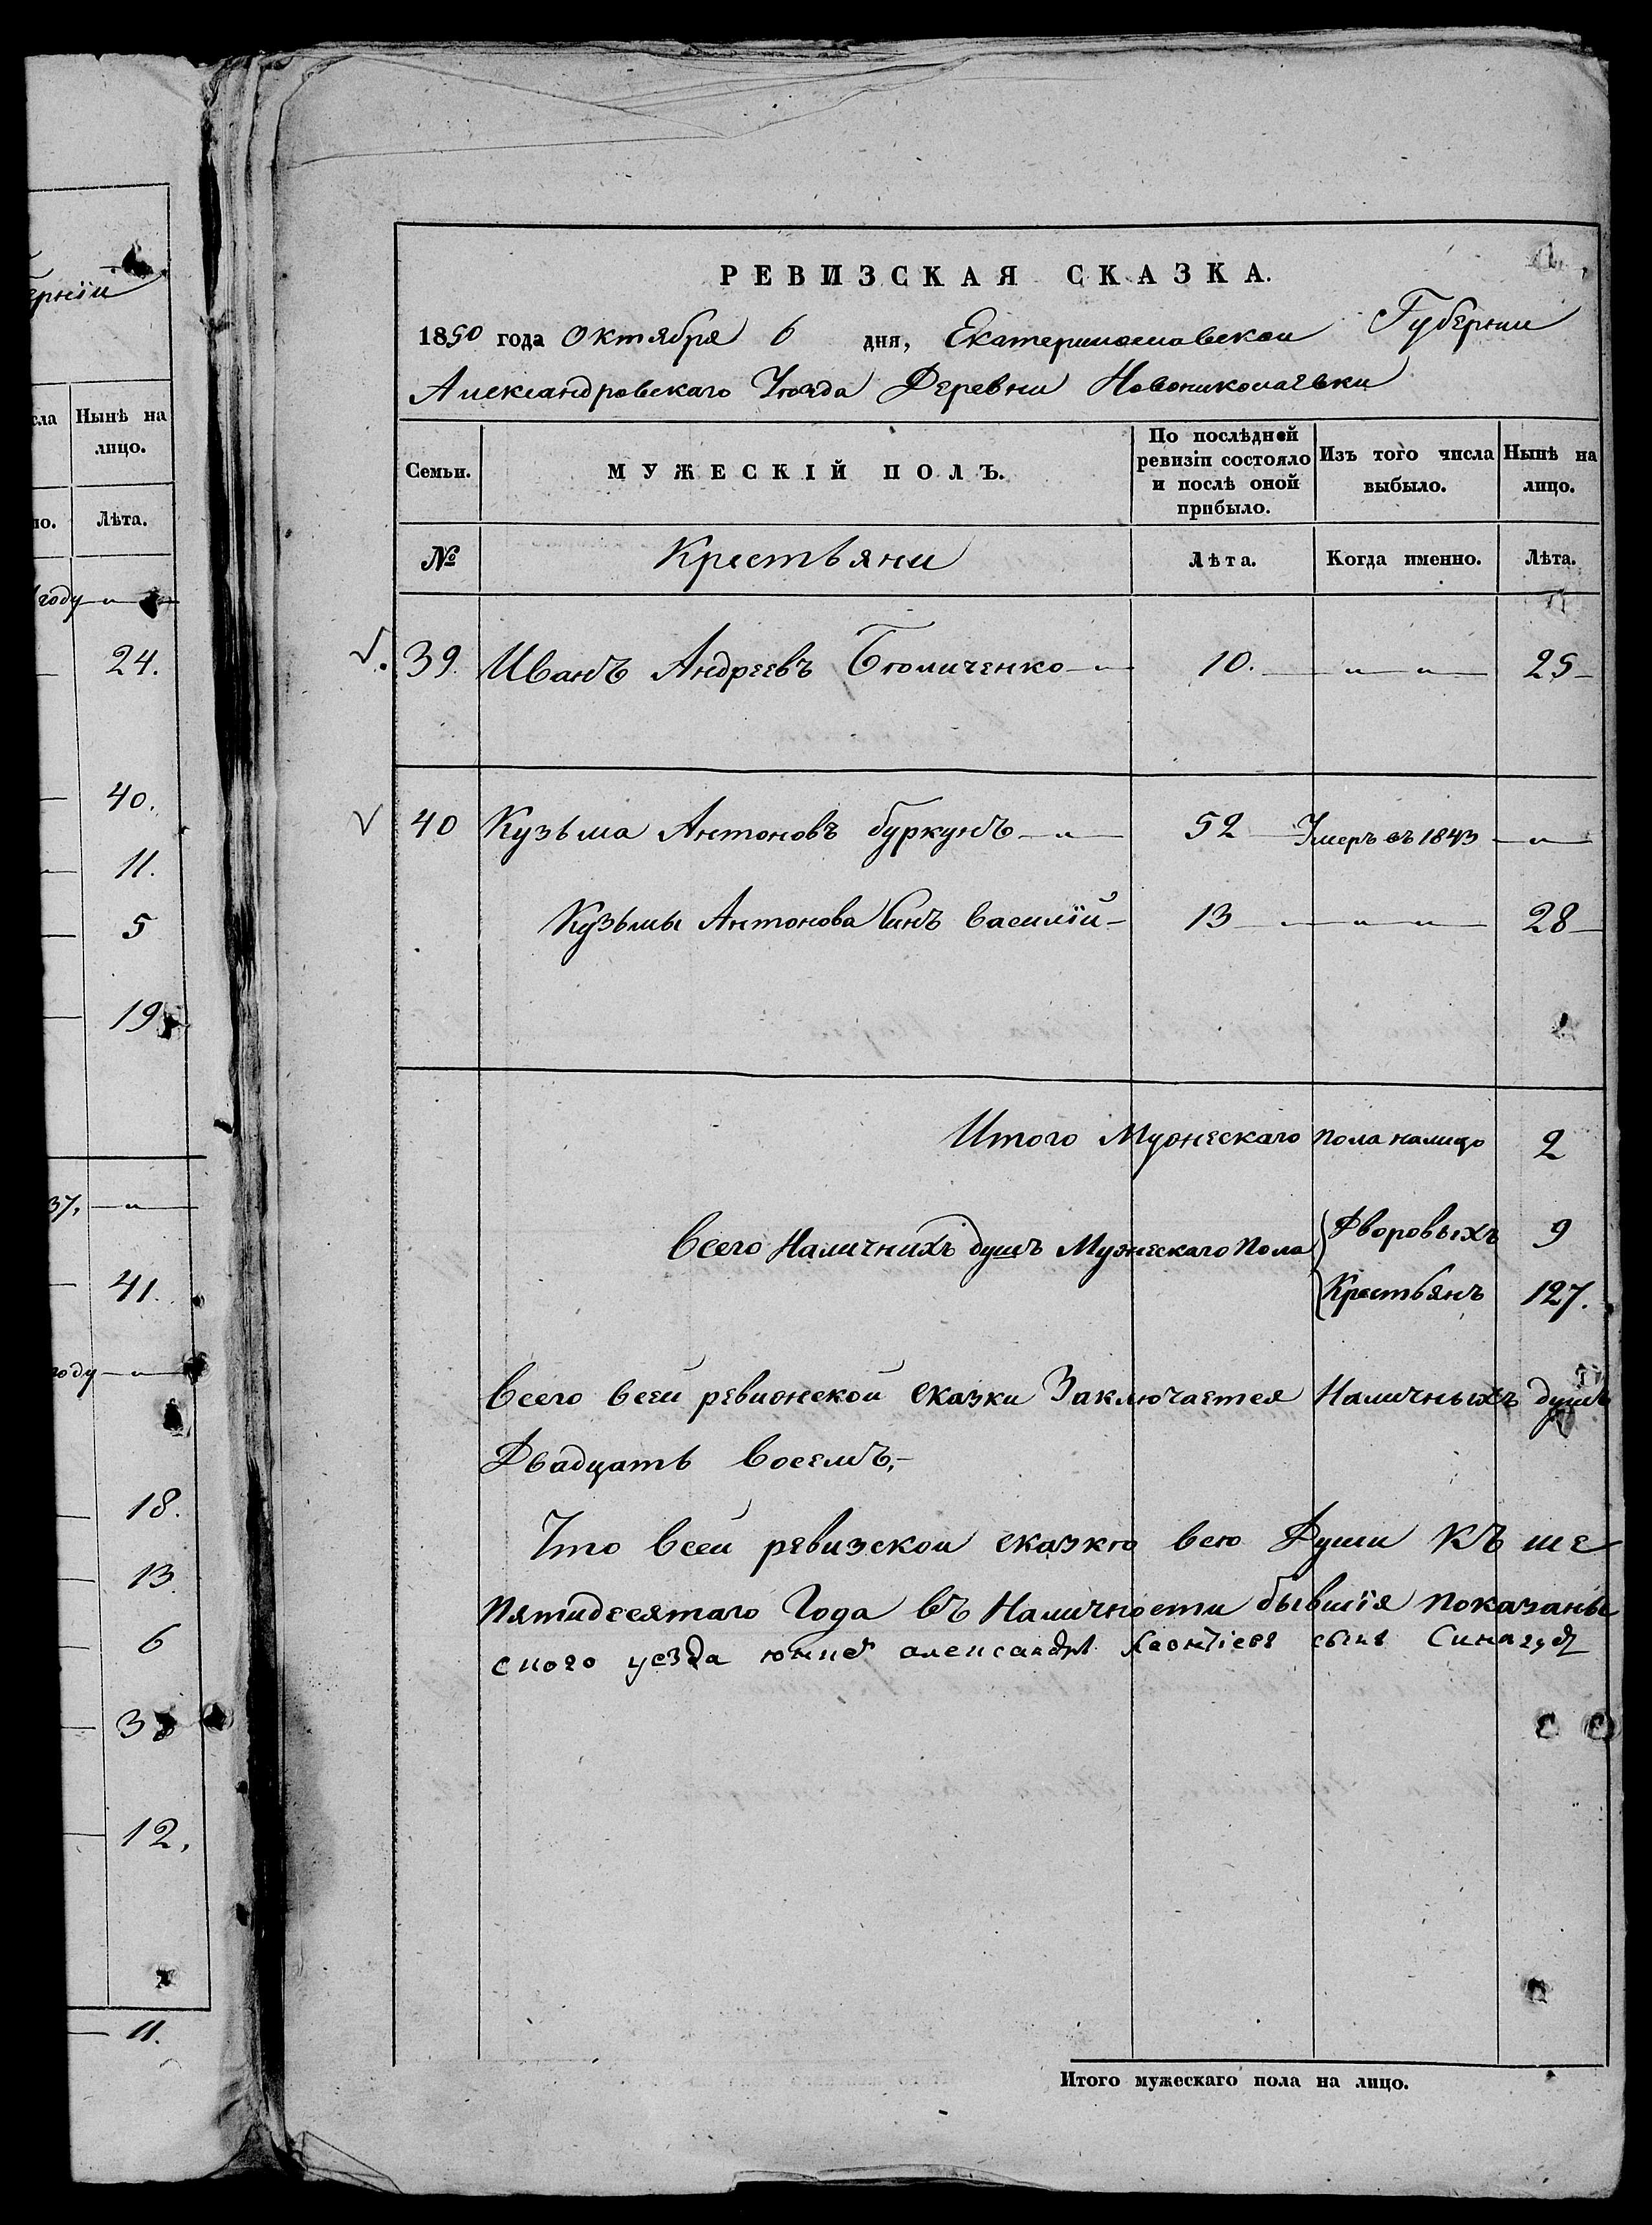 ерніи
сла
Нынѣ на
лицо.
но.
Лѣта.
году — „ —
24.
40.
11.
5
19
37, — „ —
41.
году — „ —
18.
13.
6
12.
11.
РЕВИЗСКАЯ СКАЗКА.
1850 года Октября 6 дня, Екатеринославской Губернии
Александровскаго Уѣзда Деревни Новониколаевки
Семьи.
МУЖЕСКІЙ ПОЛЪ.
По послѣдней
ревизіи состояло
и послѣ оной
прибыло.
Изъ того числа
выбыло.
Нынѣ на
лицо.
№ Крестьяни Лѣта. Когда именно. Лѣта.
√. 39 Иванъ Андреевъ Бѣличенко — „ — 10. — „ — „ — 25 —
√ 40 Кузьма Антоновъ буркунъ — „ — 52 Умеръ въ 1843 — „ —
Кузьмы Антонова Синъ Василій — 13 — „ — „ — 28 —
Итого Мужескаго пола налицо 2
Всего Наличнихъ душъ Мужескаго Пола
Дворовыхъ 9
Крестьянъ 127.
Всего всей ревизской сказки Заключается Наличныхъ душъ
Двадцать восемъ,-
Что всей ревизской сказкѣ всѣ Души КЪ ше
Пятидесятаго Года въ Наличности бывшія показаны
ского уезда александръ Леонтіевъ сынъ
Итого мужескаго пола на лицо.